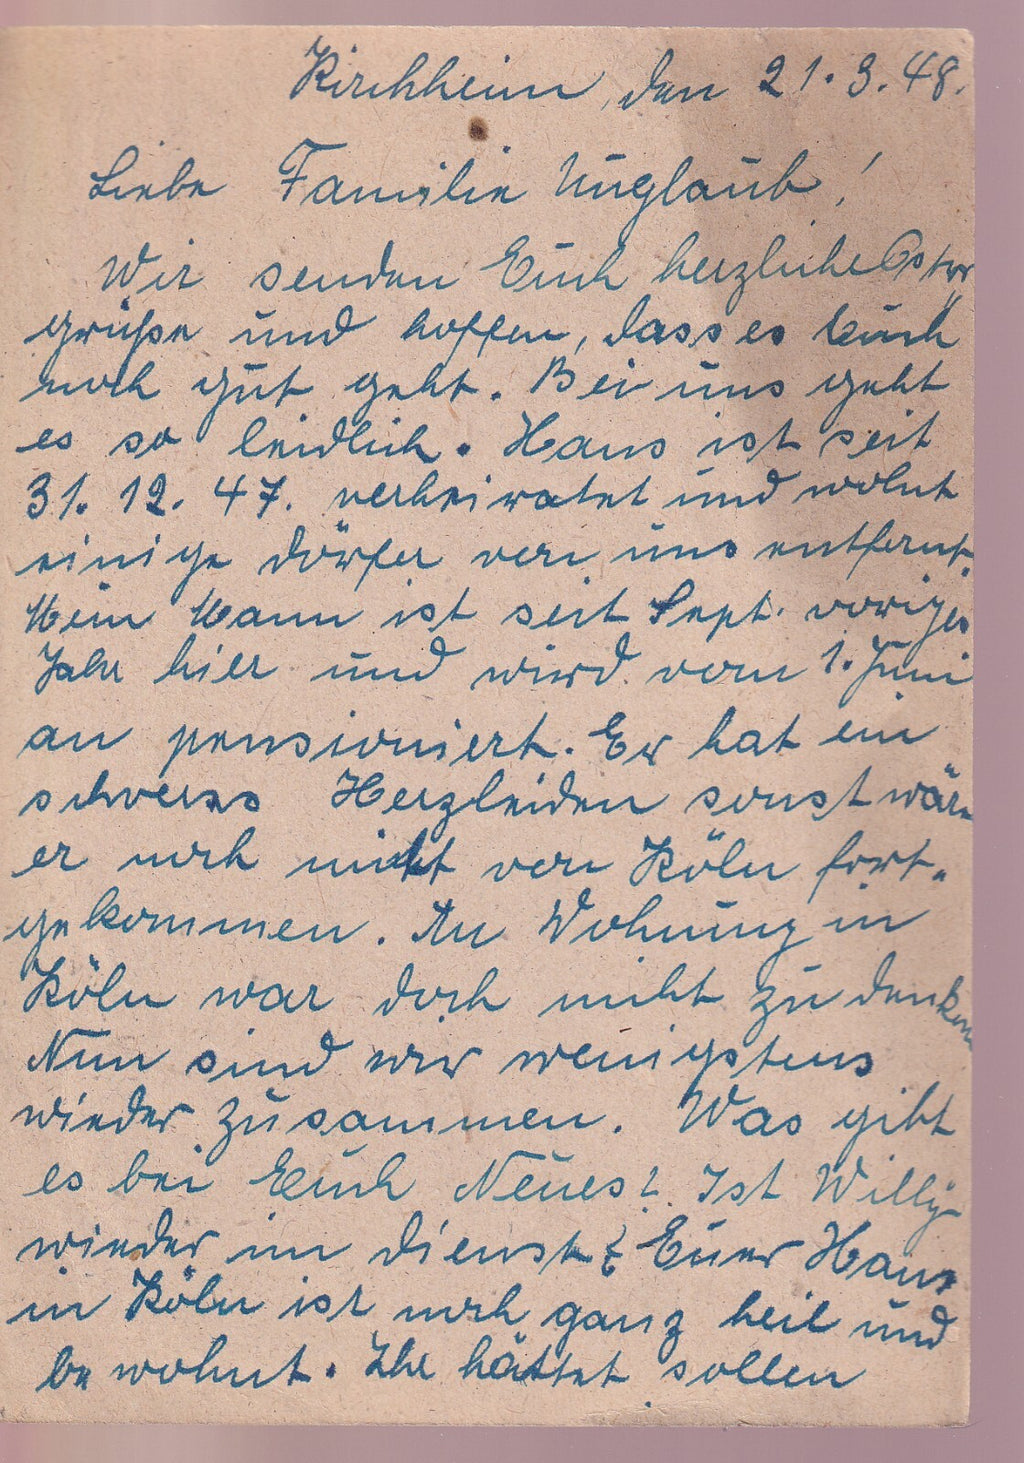 Kirchheim, den 21.3.48.
Liebe Familie Unglaub!
Wir senden Euch herzliche Oster
grüße und hoffen, dass es Euch
noch gut geht. Bei uns geht
es so leidlich. Hans ist seit
31.12.47. verheiratet und wohnt
einige Dörfer von uns entfernt.
Mein Mann ist seit Sept. voriges
Jahr hier und wird vom 1. Juni
an pensioniert. Er hat ein
schweres Herzleiden sonst wäre
er noch nicht von Köln fort-
gekommen. An Wohnung in
Köln war doch nicht zu denken
Nun sind wir wenigstens
wieder zusammen. Was gibt
es bei Euch Neues? Ist Willy
wieder im Dienst? Euer Haus
in Köln ist noch ganz heil und
bewohnt. Ihr hättet sollen